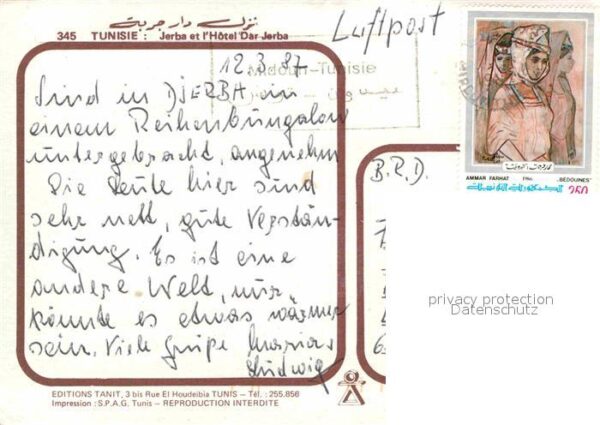 نزل دار جربة
345 TUNISIE : Jerba et l'Hôtel Dar Jerba
Luftpost
12.3.87
Midoun-Tunisie
Sind in DJERBA in
einem Reihenbungalow
untergebracht, angenehm
Die Leute hier sind
sehr nett, gute Verstän-
digung. Es ist eine
andere Welt, nur
könnte es etwas wärmer
sein. Viele Grüße
Ludwig
B.R.D.
AMMAR FARHAT 1986 „BEDOUINES"
250
privacy protection
Datenschutz
EDITIONS TANIT, 3 bis Rue El Houdeibia TUNIS – Tél. : 255.856
Impression : S.P.A.G. Tunis – REPRODUCTION INTERDITE